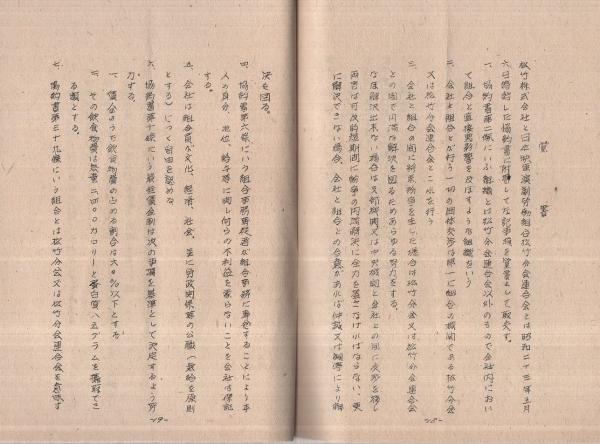 覚書
松竹株式会社と日本映画演劇労働組合松竹分会連合会とは昭和二十三年五月
六日締結した協約書に附帯して左記事項を覚書として取交す。
一、協約書第二條にいふ組織とは松竹分会連合会以外のもので会社内におい
て組合と直接影響を及ぼすような組織をいう
二、会社と組合とが行う一切の団体交渉は第一に組合の機関である松竹分会
又は松竹分会連合会とこれを行う
三、会社と組合の間に紛争所争を生じた場合は松竹分会又は松竹分会連合会
との間で円満な解決を図るためあらゆる努力をする。
なほ解決出来ない場合は支部機関又は中央機関と会社との間に交渉を移し
両者は可及的短期間に紛争の円満解決に全力を盡さなければならない、更
に解決できない場合、会社と組合との合意があれば仲裁又は調停により解
決を図る。
四、協約書第六條にいう組合事務専従者が組合事務に専従することにより本
人の身分、地位、給与等に関し何らの不利益を蒙らないことを会社は保証
する。
五、会社は組合員が文化、経済、社会、並に労政関係等の公職（無給を原則
とする）につく自由を認める
六、協約書第十條にいう最低賃金制は次の事項を基準として決定するよう努
力する。
一、賃金のうちで飲食物費の占める割合は六〇％以下とする
二、その飲食物費は熱量二四〇〇カロリーと蛋白質八五グラムを摂取でき
る額とする。
七、協約書第三十九條にいう組合とは松竹分会又は松竹分会連合会を意味す